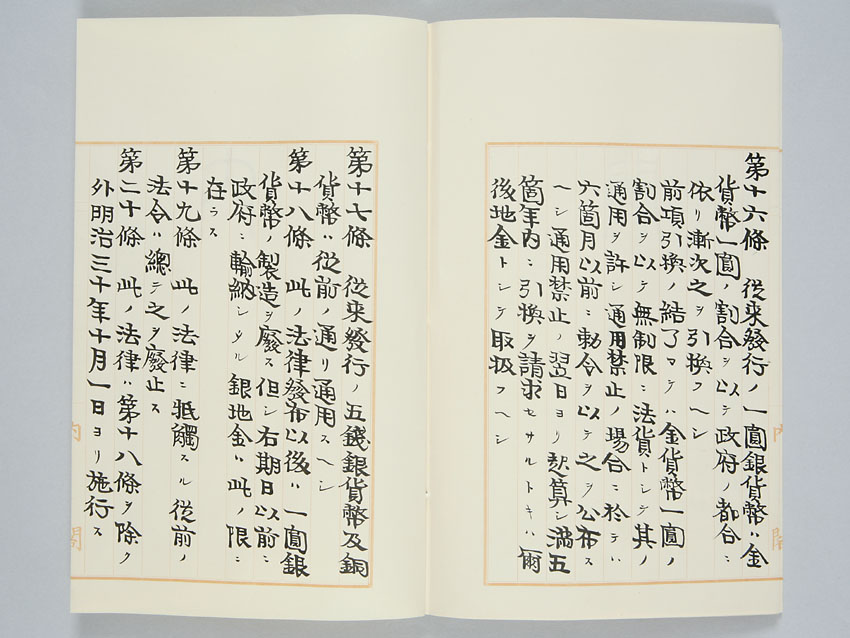 第十六條　從來發行ノ一圓銀貨幣ハ金
貨幣一圓ノ割合ヲ以テ政府ノ都合ニ
依リ漸次之ヲ引換フヘシ
前項引換ノ結了マテハ金貨幣一圓ノ
割合ヲ以テ無制限ニ法貨トシテ其ノ
通用ヲ許シ通用禁止ノ場合ニ於テハ
六箇月以前ニ勅令ヲ以テ之ヲ公布ス
ヘシ通用禁止ノ翌日ヨリ起算シ滿五
箇年內ニ引換ヲ請求セサルトキハ爾
後地金トシテ取扱フヘシ
第十七條　從來發行ノ五錢銀貨幣及銅
貨幣ハ從前ノ通リ通用スヘシ
第十八條　此ノ法律發布以後ハ一圓銀
貨幣ノ製造ヲ廢ス但シ右期日以前ニ
政府ニ輸納シタル銀地金ハ此ノ限ニ
在ラス
第十九條　此ノ法律ニ牴觸スル從前ノ
法令ハ總テ之ヲ廢止ス
第二十條　此ノ法律ハ第十八條ヲ除ク
外明治三十年十月一日ヨリ施行ス
內
閣